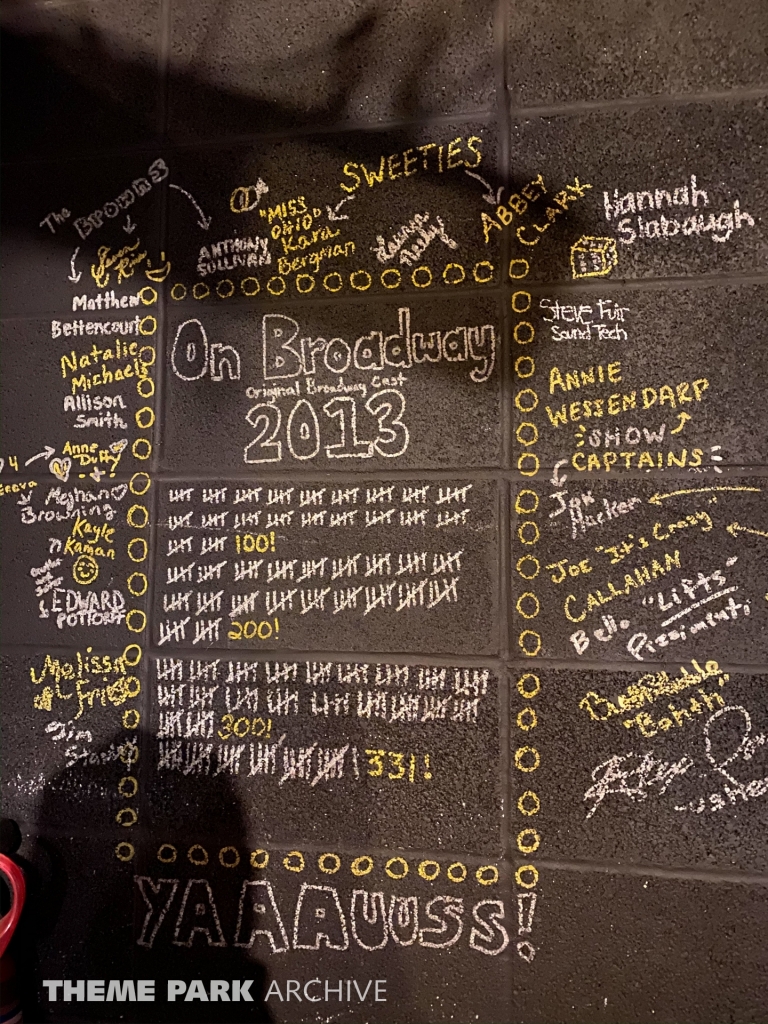 SWEETIES
The BROWNS
"MISS
OHIO"
Kara
Bergman
ANTHONY
SULLIVAN
ABBEY
CLARK
Hannah
Slabaugh
Matthew
Bettencourt
Natalie
Michaels
Allison
Smith
Anne
Duffy
Meghan
Browning
Kayle
Kaman
EDWARD
POTTORFF
Melissa
Jim
On Broadway
Original Broadway Cast
2013
100!
200!
300!
331!
Steve Fuir
Sound Tech
ANNIE
WESSENDARP
SHOW
CAPTAINS
Jon
Hacker
JOE "It's Crazy"
CALLAHAN
Bello "Lifts"
YAAAUUSS!
THEME PARK ARCHIVE